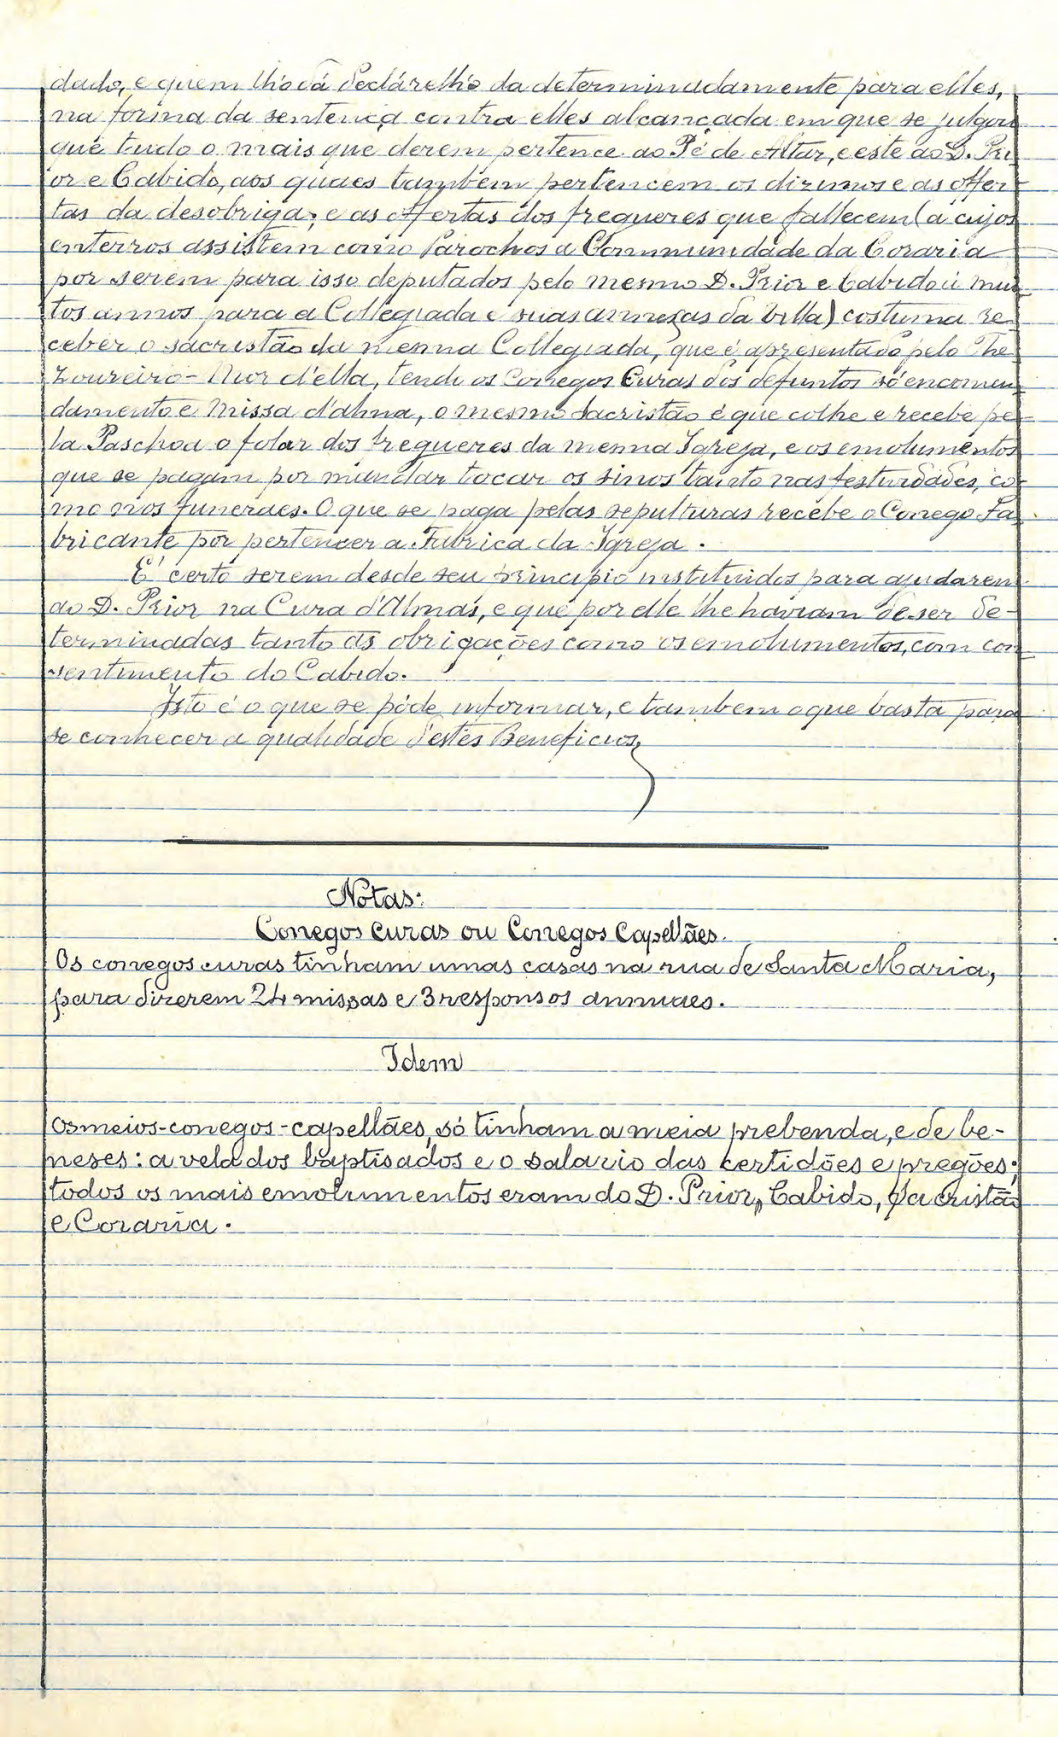 dado, e quem lh'o dá declárelh'o da determinadamente para elles,
na fórma da sentença contra elles alcançada em que se julgou
que tudo o mais que derem pertence ao Pé de Altar, e este ao D. Pri
or e Cabido, aos quaes tambem pertencem os dizimos e as offer-
tas da desobriga; e as offertas dos freguezes que fallecem (a cujos
enterros assistem como Parochos a Communidade da Coraria
por serem para isso deputados pelo mesmo D. Prior e Cabido ú mui
tos annos para a Collegiada e suas annexas da Villa) costuma re
ceber o sacristão da mesma Collegiada, que é apresentado pelo The
zoureiro-Mor d'ella, tendo os Conegos Curas dos defuntos só encomen
damento e Missa d'alma, o mesmo sacristão é que colhe e recebe pe
la Paschoa o folar dos freguezes da mesma Igreja, e os emolumentos
que se pagam por mandar tocar os sinos tanto nas festividades, co
mo nos funeraes. O que se paga pelas sepulturas recebe o Conego Fa
bricante por pertencer a Fabrica da Igreja.
E' certo serem desde seu principio instituidos para ajudarem
ao D. Prior na Cura d'Almas, e que por elle lhe haviam de ser de-
terminadas tanto as obrigações como os emolumentos, com con
sentimento do Cabido.
Isto é o que se póde informar, e tambem o que basta para
se conhecer a qualidade d'estes Beneficios,
Notas:
Conegos Curas ou Conegos Capellães.
Os conegos curas tinham umas casas na rua de Santa Maria,
para dizerem 24 missas e 3 responsos annuaes.
Idem
Os meios-conegos-capellães, só tinham a meia prebenda, e de be-
neses: a vela dos baptisados e o salario das certidões e pregões;
todos os mais emolumentos eram do D. Prior, Cabido, Sacristão
e Coraria.